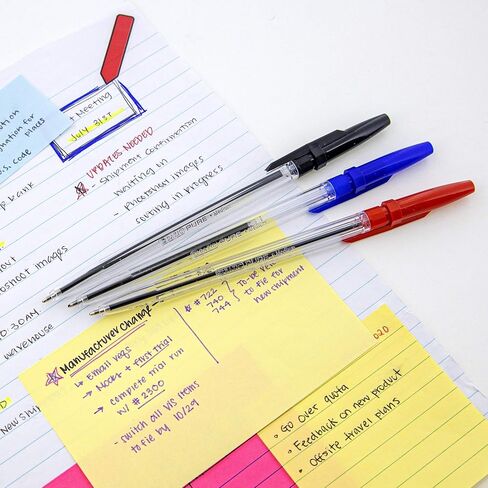 t Meeting
July 31st
UPDATES NEEDED
- Shipment confirmation
waiting on
- Photoshop images
sorting in progress
ution
for places
s. code
p bank
images
0:30 AM
warehouse
New Ship
Manufacturer Change
→ Email regs
→ Mocks + first trial
→ complete trial run
w/ # 2300
- Switch all VIS items
to fie by 10/29
# 722
740
744
to fie for
new shipment
020
• Go over quota
• Feedback on new product
• Offsite travel plans